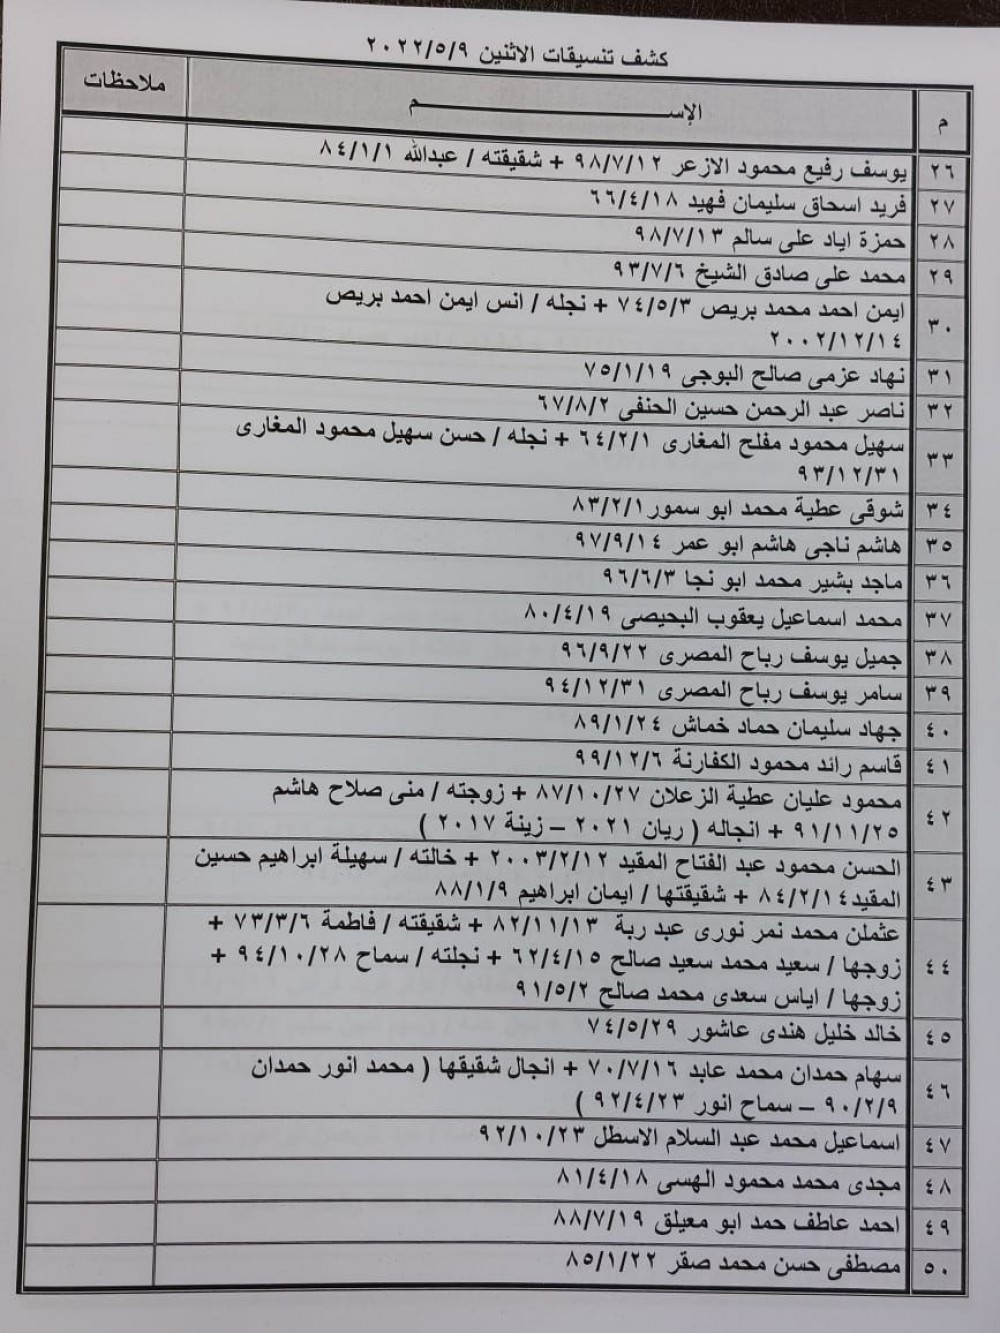 كشف تنسيقات الاثنين ٢٠٢٢/٥/٩
م الإســـــم ملاحظات
٢٦ يوسف رفيع محمود الازعر ٩٨/٧/١٢ + شقيقته / عبدالله ٨٤/١/١
٢٧ فريد اسحاق سليمان فهيد ٦٦/٤/١٨
٢٨ حمزة اياد على سالم ٩٨/٧/١٣
٢٩ محمد على صادق الشيخ ٩٣/٧/٦
٣٠ ايمن احمد محمد بريص ٧٤/٥/٣ + نجله / انس ايمن احمد بريص
٢٠٠٢/١٢/١٤
٣١ نهاد عزمى صالح البوجى ٧٥/١/١٩
٣٢ ناصر عبد الرحمن حسين الحنفى ٦٧/٨/٢
٣٣ سهيل محمود مفلح المغارى ٦٤/٢/١ + نجله / حسن سهيل محمود المغارى
٩٣/١٢/٣١
٣٤ شوقى عطية محمد ابو سمور ٨٣/٢/١
٣٥ هاشم ناجى هاشم ابو عمر ٩٧/٩/١٤
٣٦ ماجد بشير محمد ابو نجا ٩٦/٦/٣
٣٧ محمد اسماعيل يعقوب البحيصى ٨٠/٤/١٩
٣٨ جميل يوسف رباح المصرى ٩٦/٩/٢٢
٣٩ سامر يوسف رباح المصرى ٩٤/١٢/٣١
٤٠ جهاد سليمان حماد خماش ٨٩/١/٢٤
٤١ قاسم رائد محمود الكفارنة ٩٩/١٢/٦
٤٢ محمود عليان عطية الزعلان ٨٧/١٠/٢٧ + زوجته / منى صلاح هاشم
٩١/١١/٢٥ + انجاله ( ريان ٢٠٢١ – زينة ٢٠١٧ )
٤٣ الحسن محمود عبد الفتاح المقيد ٢٠٠٣/٢/١٢ + خالته / سهيلة ابراهيم حسين
المقيد ٨٤/٢/١٤ + شقيقتها / ايمان ابراهيم ٨٨/١/٩
٤٤ عثملن محمد نمر نورى عبد ربة ٨٢/١١/١٣ + شقيقته / فاطمة ٧٣/٣/٦ +
زوجها / سعيد محمد سعيد صالح ٦٢/٤/١٥ + نجلته / سماح ٩٤/١٠/٢٨ +
زوجها / اياس سعدى محمد صالح ٩١/٥/٢
٤٥ خالد خليل هندى عاشور ٧٤/٥/٢٩
٤٦ سهام حمدان محمد عابد ٧٠/٧/١٦ + انجال شقيقها ( محمد انور حمدان
٩٠/٢/٩ – سماح انور ٩٢/٤/٢٣ )
٤٧ اسماعيل محمد عبد السلام الاسطل ٩٢/١٠/٢٣
٤٨ مجدى محمد محمود الهسى ٨١/٤/١٨
٤٩ احمد عاطف حمد ابو معيلق ٨٨/٧/١٩
٥٠ مصطفى حسن محمد صقر ٨٥/١/٢٢